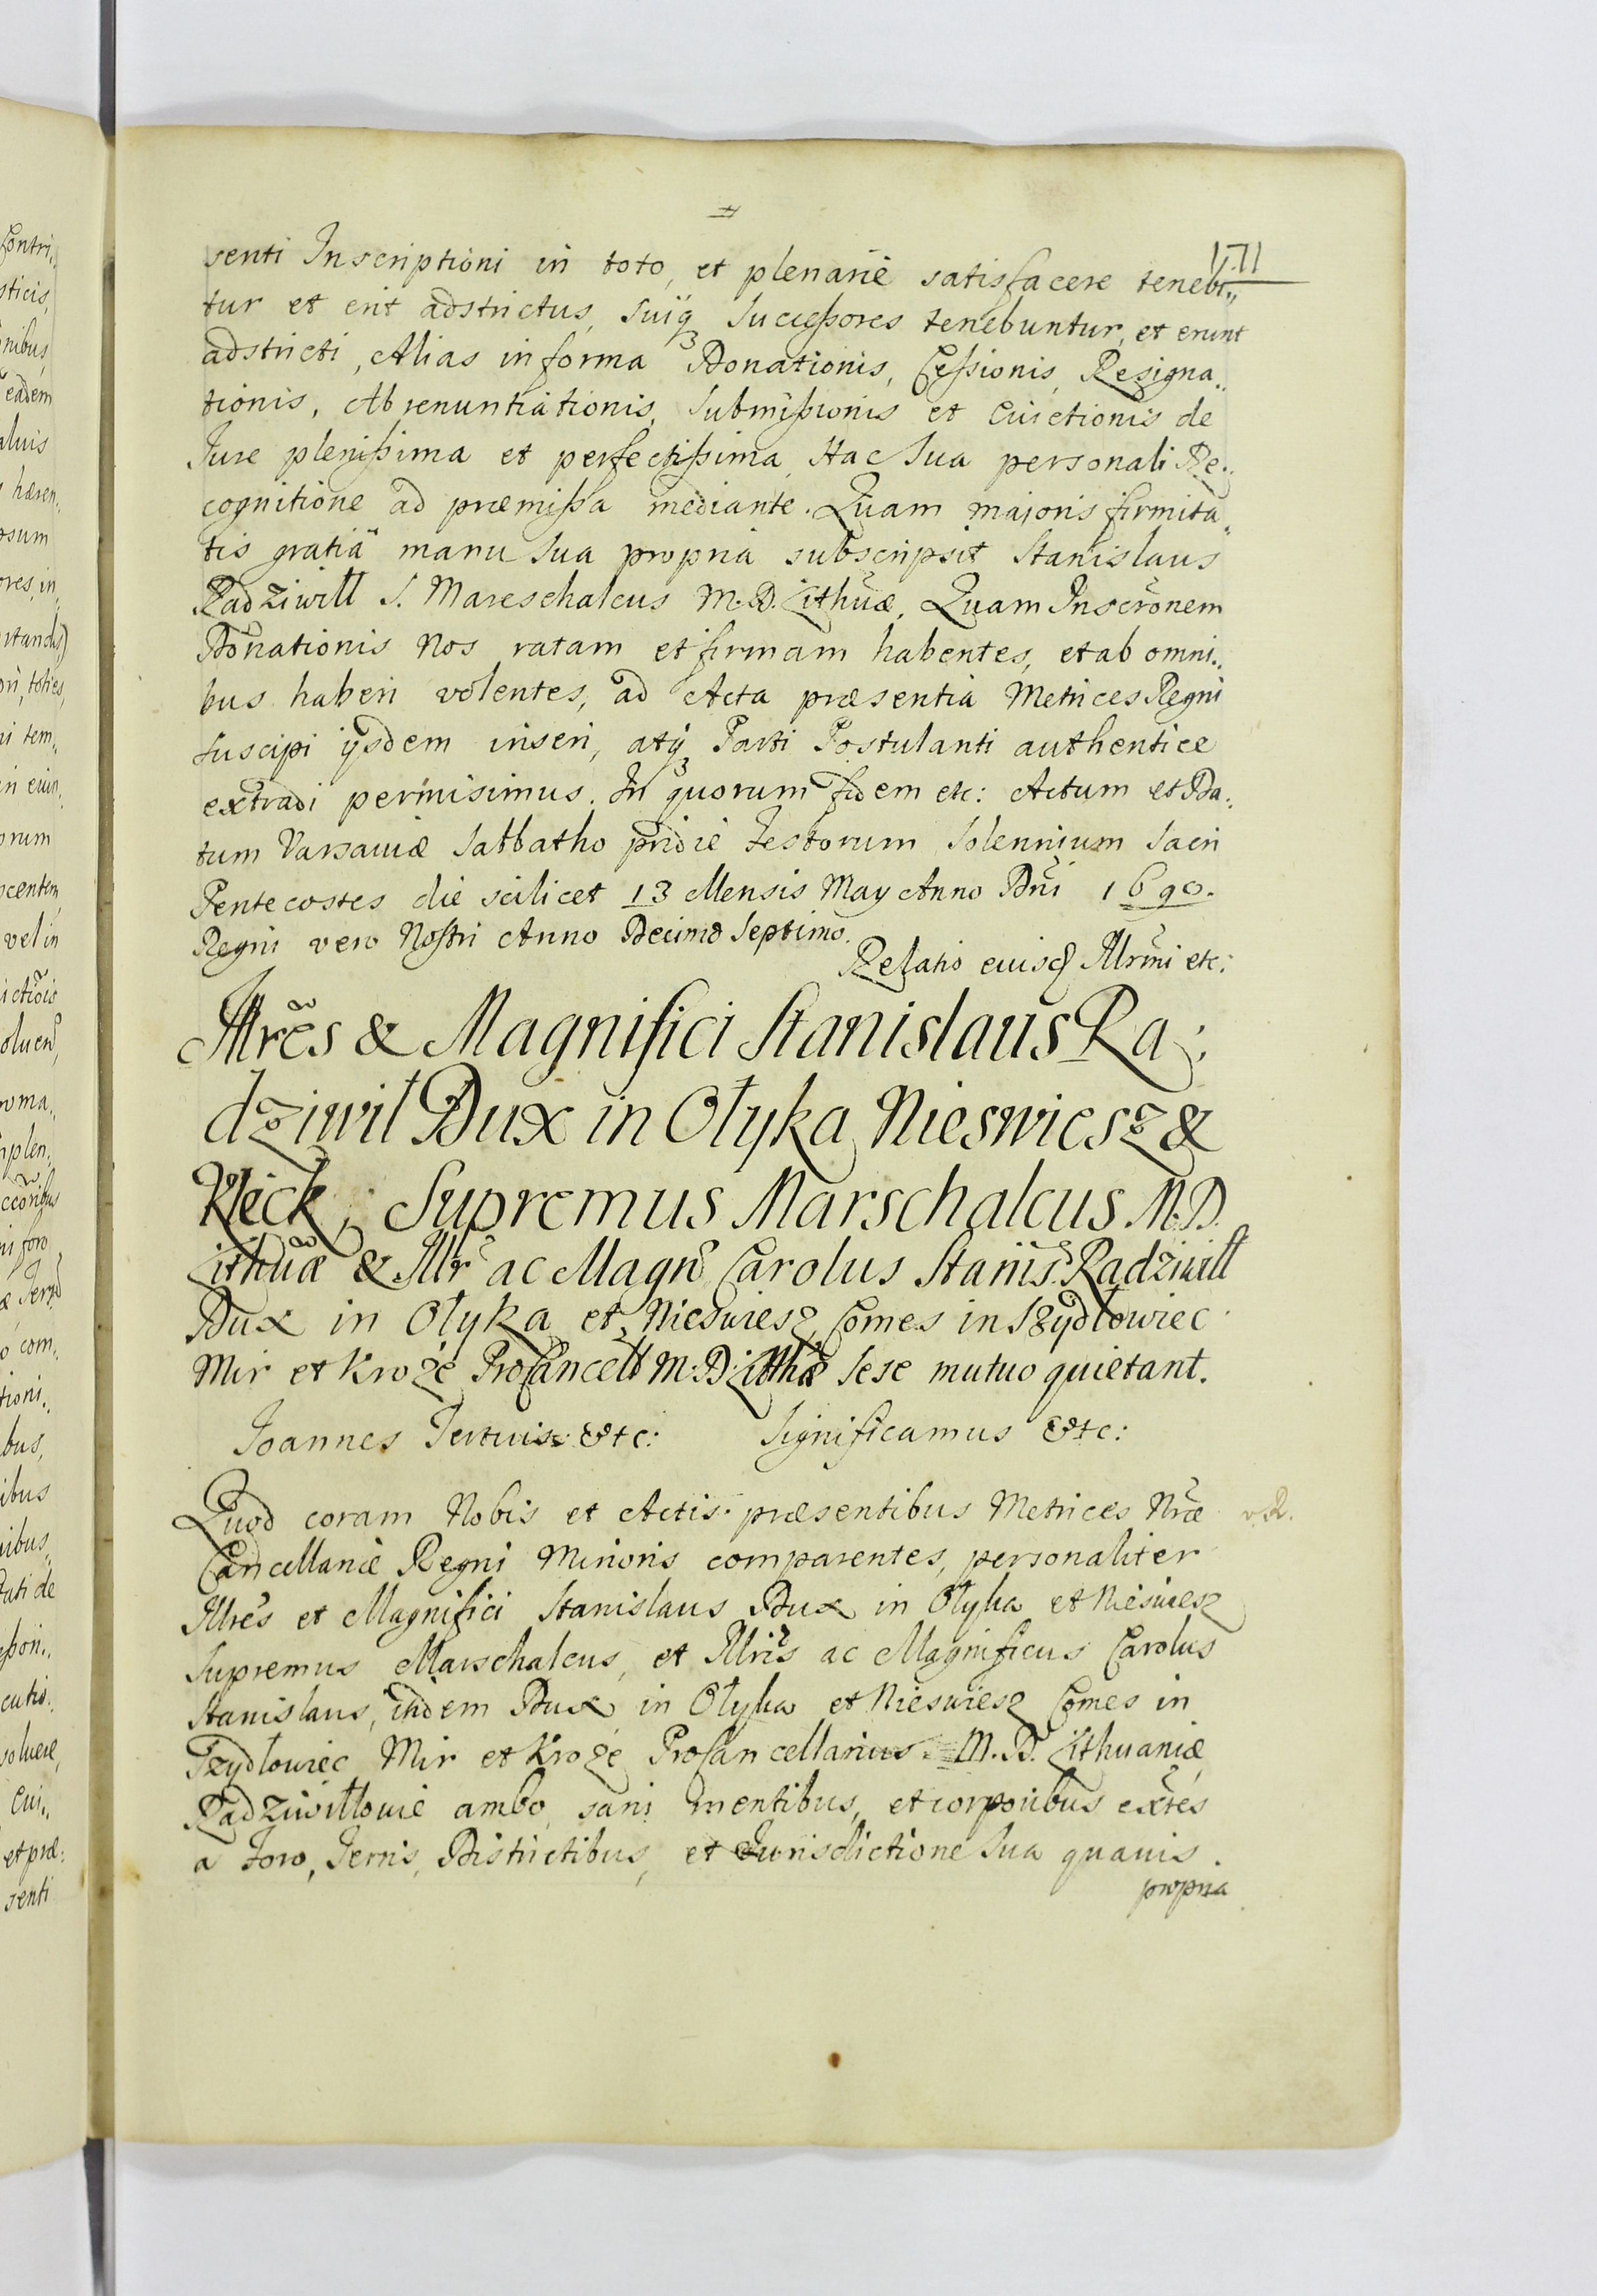 171
senti Inscriptioni in toto, et plenarie satisfacere tenebi„
tur et erit adstrictus, Suiq₃ Successores tenebuntur, et erunt
adstricti, Alias in forma Donationis, Cessionis, Resigna„
tionis, Abrenuntiationis, Submissionis et Euictionis de
Jure plenissima et perfectissima, Hac Sua personali Re„
cognitione ad præmissa mediante. Quam majoris firmita„
tis gratiâ manu Sua propria subscripsit Stanislaus
Radziwill S. Mareschalcus M. D. Lithuæ, Quam Inscrõnem
Donationis Nos ratam et firmam habentes, et ab omni„
bus haberi volentes, ad Acta præsentia Metrices Regni
Suscipi ijsdem inseri, atq₃ Parti Postulanti authentice
extradi permisimus. In quorum fidem etc: Actum et Da„
tum Varsauiæ Sabbatho pridie Festorum Solennium Sacri
Pentecostes die scilicet 13 Mensis May Anno Dñi 1690.
Regni vero Nostri Anno Decimo Septimo.
Relatio eiusd Illrmi etc:
Illres & Magnifici Stanislaus Ra„
dziwił Dux in Ołyka Nieswiesz &
Kleck, Supremus Marschalcus M. D.
Lithuæ & Illr ac Magn Carolus Stanis. Radziwiłł
Dux in Ołyka et Nieswiesz Comes in Szydłowiec
Mir et Kroże ProCancell M. D. Litthæ Sese mutuo quietant.
Joannes Tertius etc: Significamus etc:
Quod coram Nobis et Actis præsentibus Metrices Nræ
v. R.
Cancellariæ Regni Minoris comparentes, personaliter
Illres et Magnifici Stanislaus Dux in Ołyka et Nieswiesz
Supremus Marschalcus, et Illris ac Magnificus Carolus
Stanislaus, itidem Dux in Ołyka et Nieswiesz Comes in
Szydłowiec Mir et Kroże ProCancellarius M. D. Lithuaniæ
Radziwiłłowie ambo, sani mentibus, et corporibus extẽs
a Foro, Terris, Districtibus, et Jurisdictione Sua quauis
propria